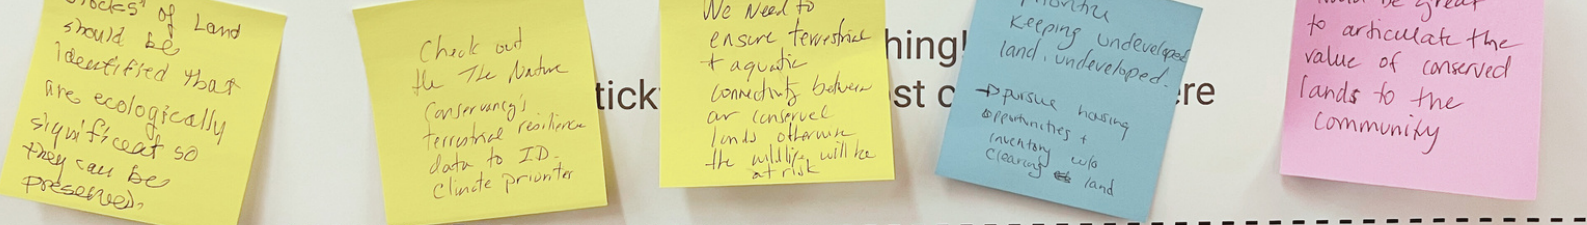 of Land
should be
identified that
are ecologically
significant so
they can be
preserved.
Check out
the The Nature
Conservancy's
terrestrial resilience
data to ID
climate priorities
We need to
ensure terrestrial
+ aquatic
connectivity between
our conserved
lands otherwise
the wildlife will be
at risk
Keeping undeveloped
land, undeveloped.
→ pursue housing
opportunities +
inventory w/o
clearing land
be great
to articulate the
value of conserved
lands to the
community
hing!
tick
st c
re